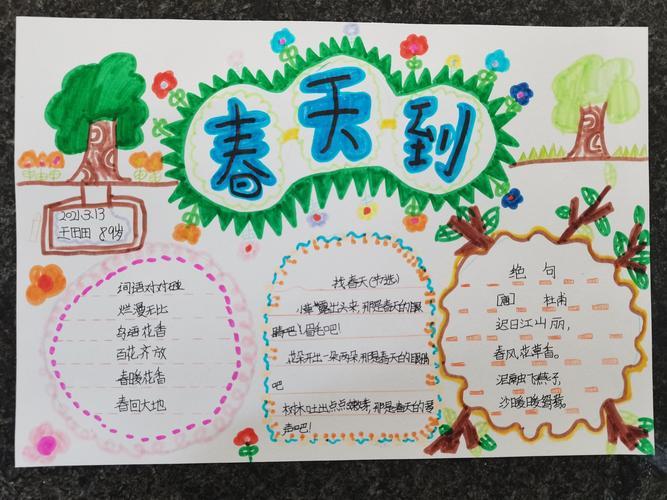 春天到
2021.3.13
王田田 8岁
词语对对碰
烂漫无比
鸟语花香
百花齐放
春暖花香
春回大地
找春天(节选)
小草露出头来,那是春天的眉
吧!
花朵开出一朵两朵那是春天的眼睛
吧
树木吐出点点嫩芽,那是春天的琴
声吧!
绝句
杜甫
迟日江山丽,
春风花草香。
泥融飞燕子,
沙暖睡鸳鸯。